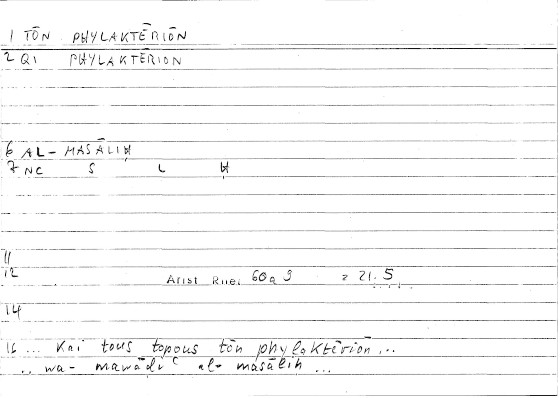 1 TŌN PHYLAKTĒRIŌN
2 Q1 PHYLAKTĒRION
6 AL-MAṢĀLIḤ
7 NC S L Ḥ
11
12 Arist Rhet 60a 9 = 21.5
14
16 ... Kai tous topous tōn phylaktēriōn ...
.. wa- mawāḍiʿ al- maṣāliḥ ...